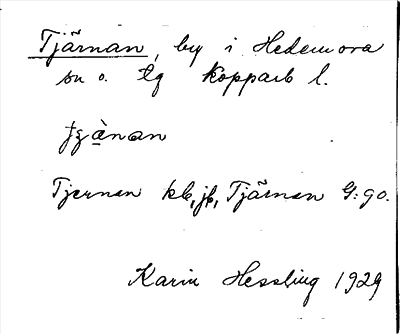 Tjärnan, by i Hedemora
sn o. tg Kopparb l.
Tjernan kb, jb, Tjärnan G:go.
Karin Hessling 1929